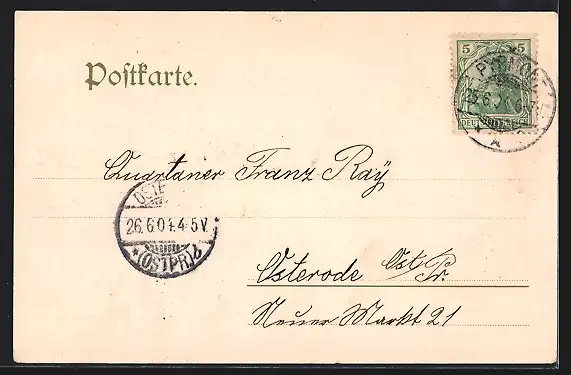 Postkarte.
5 5
DEUTSCHES REICH
PYRMONT
25.6.
Quartaner Franz Raÿ
OSTE
26.6.04.4-5V.
*(OSTPR)b
Osterode Ost Pr.
Neuer Markt 21